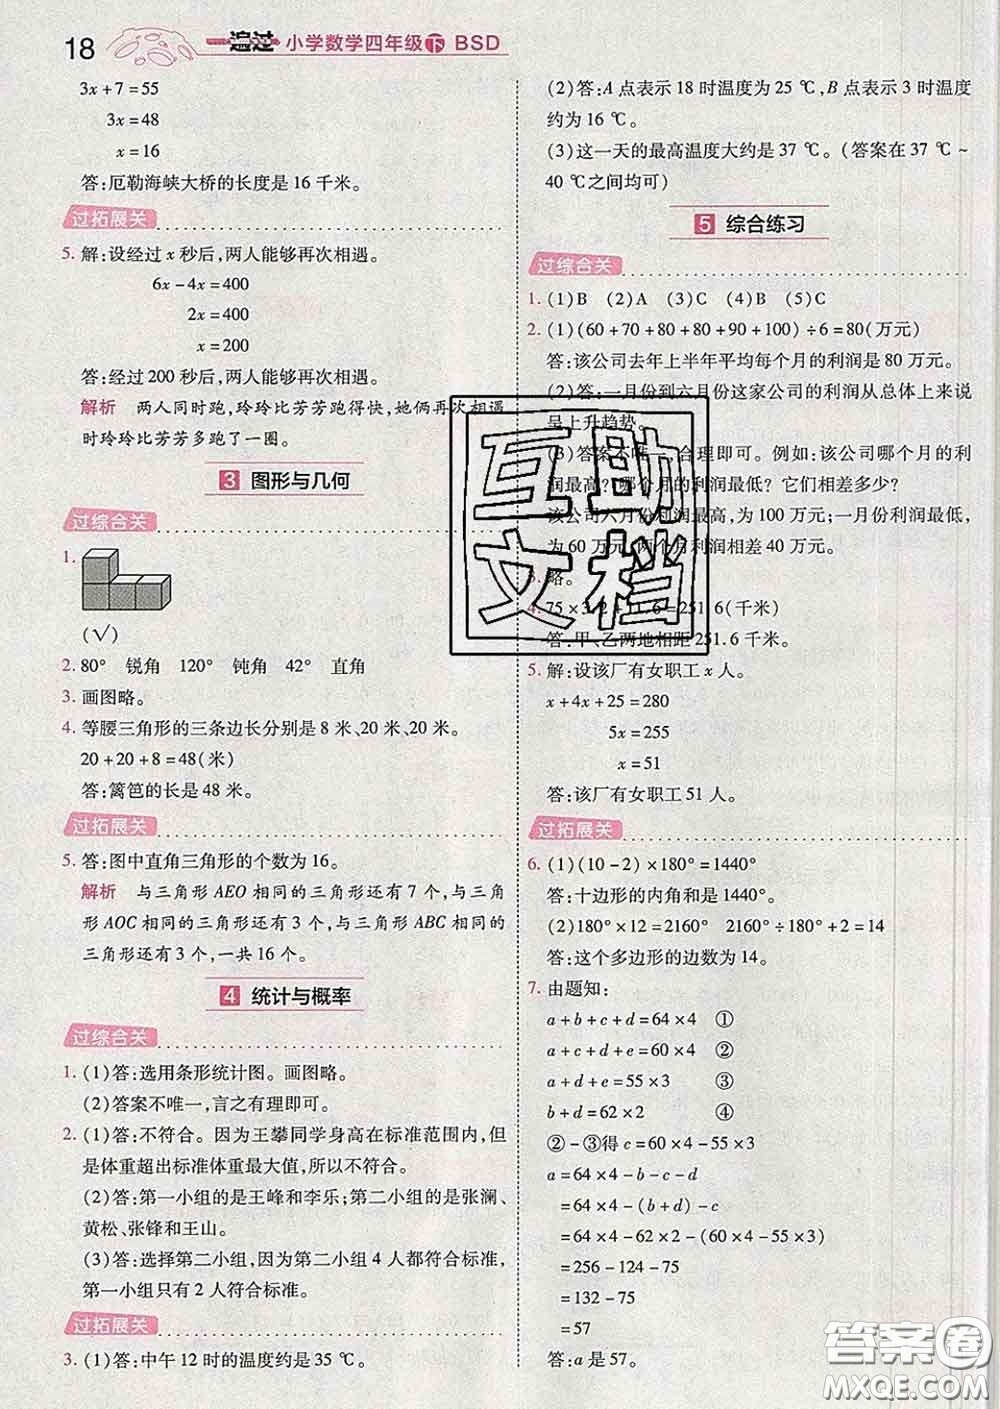 18 一遍过 小学数学四年级下 BSD
3x + 7 = 55
3x = 48
x = 16
答:厄勒海峡大桥的长度是 16 千米。
过拓展关
5. 解:设经过 x 秒后,两人能够再次相遇。
6x - 4x = 400
2x = 400
x = 200
答:经过 200 秒后,两人能够再次相遇。
解析 两人同时跑,玲玲比芳芳跑得快,她俩再次相遇
时玲玲比芳芳多跑了一圈。
3 图形与几何
过综合关
1.
(√)
2. 80° 锐角 120° 钝角 42° 直角
3. 画图略。
4. 等腰三角形的三条边长分别是 8 米、20 米、20 米。
20 + 20 + 8 = 48(米)
答:篱笆的长是 48 米。
过拓展关
5. 答:图中直角三角形的个数为 16。
解析 与三角形 AEO 相同的三角形还有 7 个,与三角
形 AOC 相同的三角形还有 3 个,与三角形 ABC 相同的
三角形还有 3 个,一共 16 个。
4 统计与概率
过综合关
1. (1)答:选用条形统计图。画图略。
(2)答案不唯一,言之有理即可。
2. (1)答:不符合。因为王攀同学身高在标准范围内,但
是体重超出标准体重最大值,所以不符合。
(2)答:第一小组的是王峰和李乐;第二小组的是张澜、
黄松、张锋和王山。
(3)答:选择第二小组,因为第二小组 4 人都符合标准,
第一小组只有 2 人符合标准。
过拓展关
3. (1)答:中午 12 时的温度约是 35 ℃。
(2)答:A 点表示 18 时温度为 25 ℃,B 点表示 3 时温度
约为 16 ℃。
(3)这一天的最高温度大约是 37 ℃。(答案在 37 ℃ ~
40 ℃之间均可)
5 综合练习
过综合关
1. (1)B (2)A (3)C (4)B (5)C
2. (1)(60 + 70 + 80 + 80 + 90 + 100) ÷ 6 = 80(万元)
答:该公司去年上半年平均每个月的利润是 80 万元。
(2)答:一月份到六月份这家公司的利润从总体上来说
呈上升趋势。
(3)答案不唯一,合理即可。例如:该公司哪个月的利
润最高?哪个月的利润最低?它们相差多少?
该公司六月份利润最高,为 100 万元;一月份利润最低,
为 60 万元,两个月利润相差 40 万元。
3. 略。
4. 75 × 3.2 + 11.6 = 251.6(千米)
答:甲、乙两地相距 251.6 千米。
5. 解:设该厂有女职工 x 人。
x + 4x + 25 = 280
5x = 255
x = 51
答:该厂有女职工 51 人。
过拓展关
6. (1)(10 - 2) × 180° = 1440°
答:十边形的内角和是 1440°。
(2)180° × 12 = 2160° 2160° ÷ 180° + 2 = 14
答:这个多边形的边数为 14。
7. 由题知:
a + b + c + d = 64 × 4 ①
a + c + d + e = 60 × 4 ②
a + d + e = 55 × 3 ③
b + d = 62 × 2 ④
② - ③得 c = 60 × 4 - 55 × 3
a = 64 × 4 - b - d - c
= 64 × 4 - (b + d) - c
= 64 × 4 - 62 × 2 - (60 × 4 - 55 × 3)
= 256 - 124 - 75
= 132 - 75
= 57
答:a 是 57。
互助
文档
答案卷
MXQE.COM